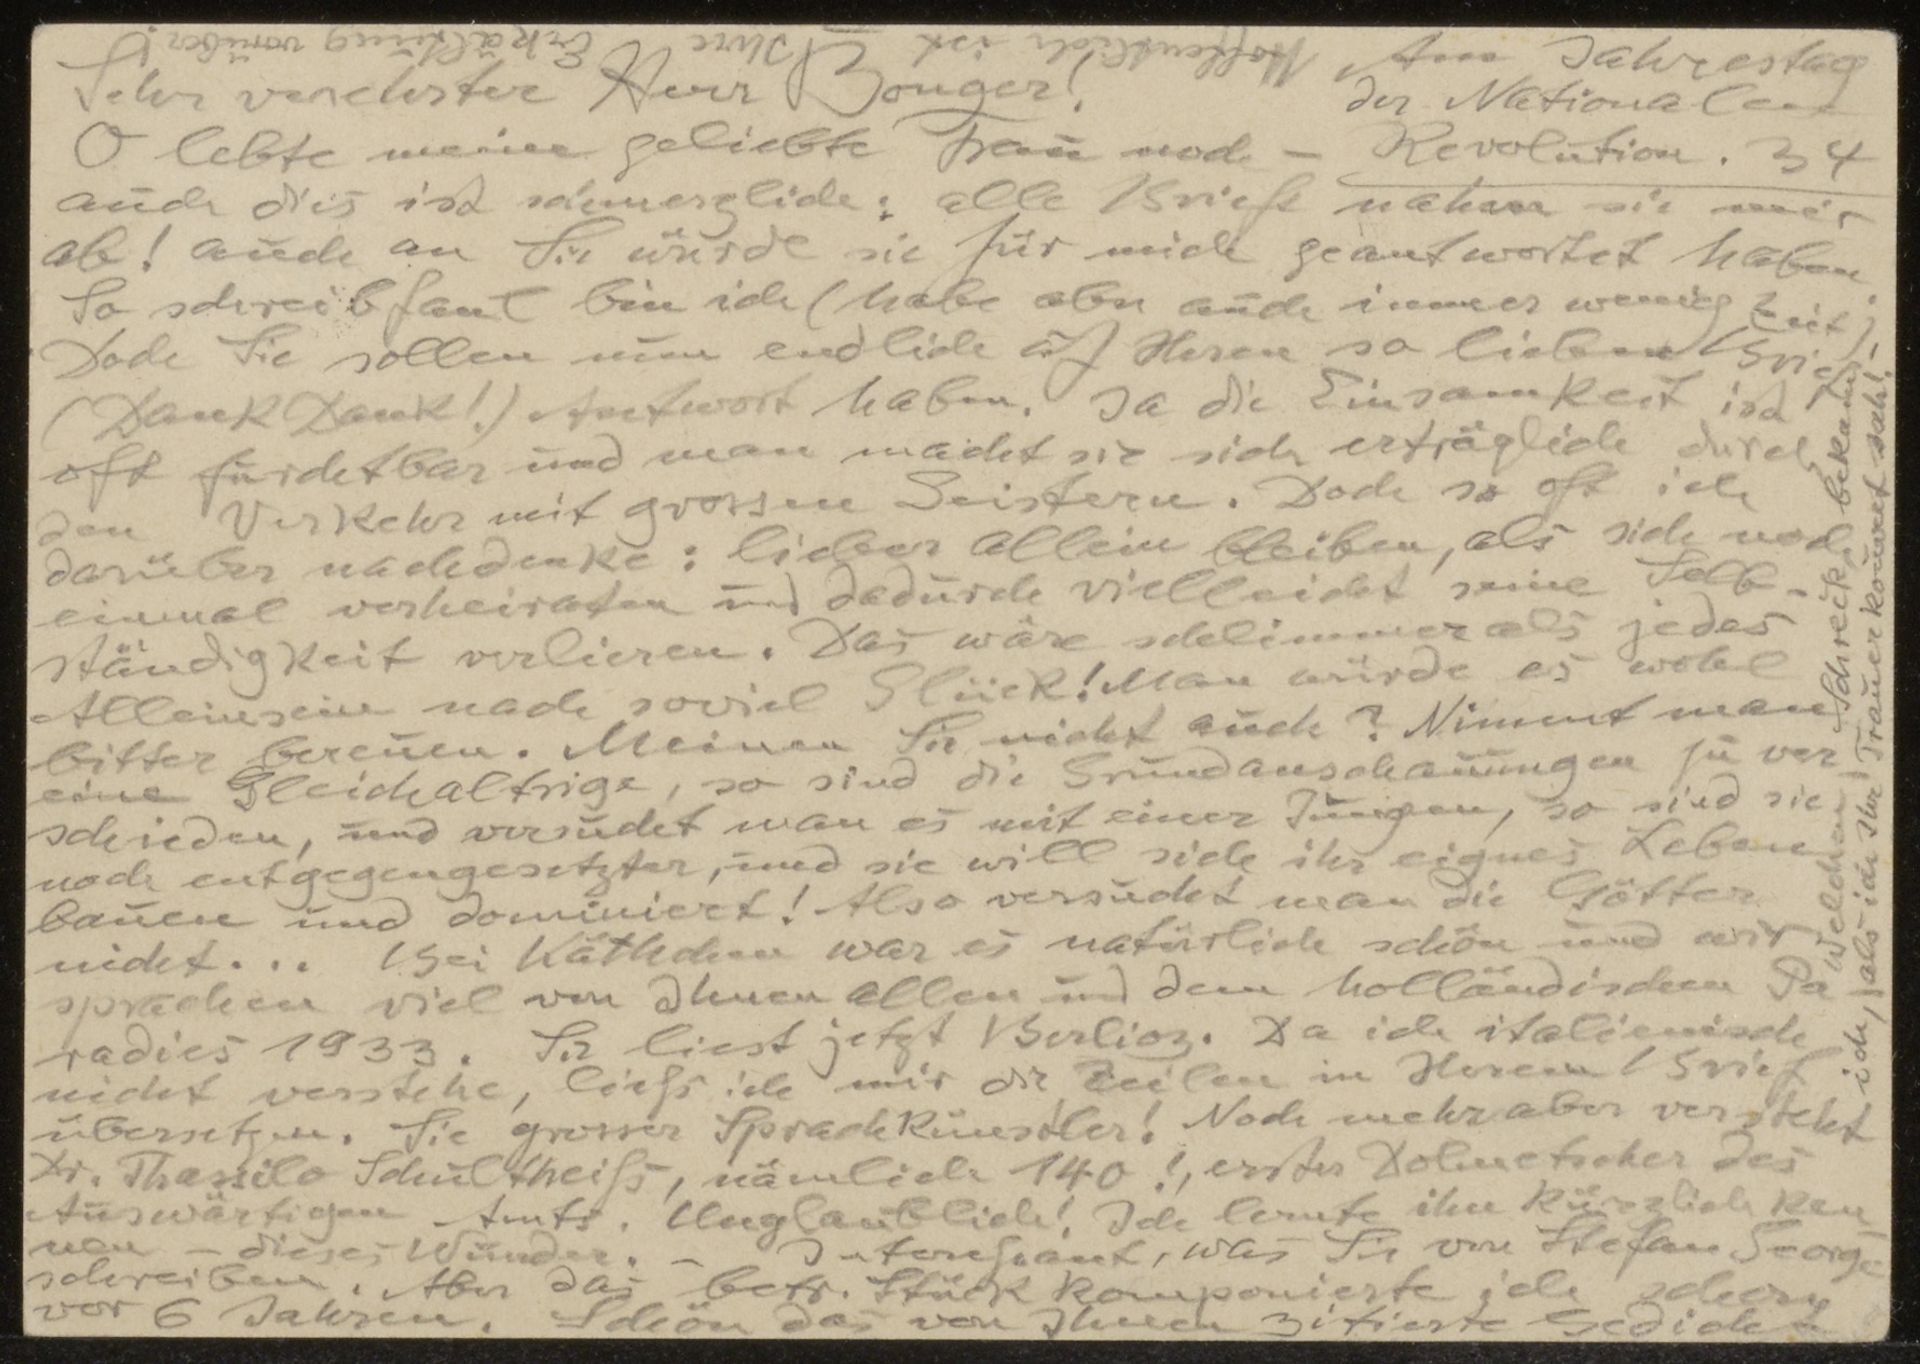 Am Jahrestag
der Nationalen
Revolution. 34
Sehr verehrter Herr Bonger!
O lebte meine geliebte Frau noch –
auch dies ist schmerzlich: alle Briefe nahm sie mir
ab! auch an Sie würde sie für mich geantwortet haben
So schreibfaul bin ich (habe aber auch immer wenig Zeit).
Doch Sie sollen nun endlich auf Ihren so lieben Brief
(Dank Dank!) Antwort haben. Ja die Einsamkeit ist
oft furchtbar und man macht sie sich erträglich durch
den Verkehr mit grossen Geistern. Doch so oft ich
darüber nachdenke: lieber allein bleiben, als sich noch
einmal verheiraten und dadurch vielleicht seine Selb-
ständigkeit verlieren. Das wäre schlimmer als jedes
Alleinsein nach soviel Glück! Man würde es wohl
bitter bereuen. Meinen Sie nicht auch? Nimmt man
eine Gleichaltrige, so sind die Grundanschauungen zu ver
schieden, und versucht man es mit einer Jungen, so sind sie
noch entgegengesetzter, und sie will sich ihr eignes Leben
bauen und dominiert! Also versucht man die Götter
nicht... Bei Käthchen war es natürlich schön und wir
sprachen viel von Ihnen allen und dem holländischen Pa
radies 1933. Sie liest jetzt Berlioz. Da ich italienisch
nicht verstehe, ließ ich mir die Zeilen in Ihrem Brief
übersetzen. Sie grosser Sprachkünstler! Noch mehr aber versteht
Dr. Thassilo Schultheiß, nämlich 140!, erster Dolmetscher des
Auswärtigen Amts. Unglaublich! Ich lernte ihn kürzlich ken
nen – dieses Wunder. – Interessant, was Sie von Stefan George
schreiben. Aber das betr. Stück komponierte ich schon
vor 6 Jahren. Schön das von Ihnen zitierte Gedicht
Welchen Schreck bekam
ich, als ich Ihr Trauerkouvert sah!
Hoffentlich ist Ihre Erkältung vorüber!